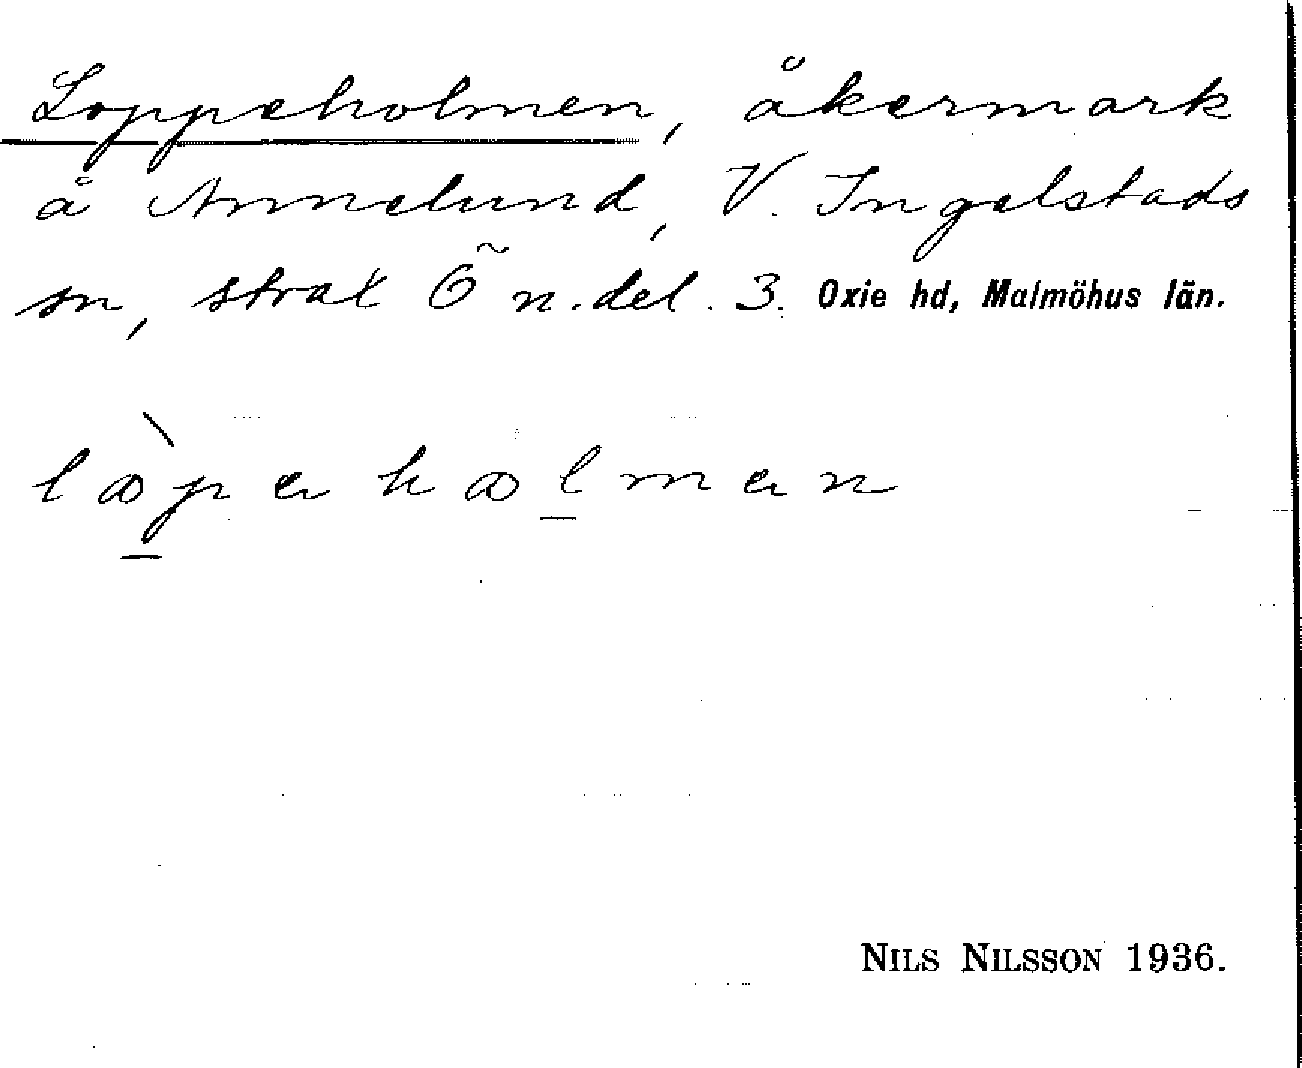 Loppeholmen, åkermark
å Annelund, V. Ingelstads
sn, strax Ö n. del. 3. Oxie hd, Malmöhus län.
lòpəholmən
NILS NILSSON 1936.